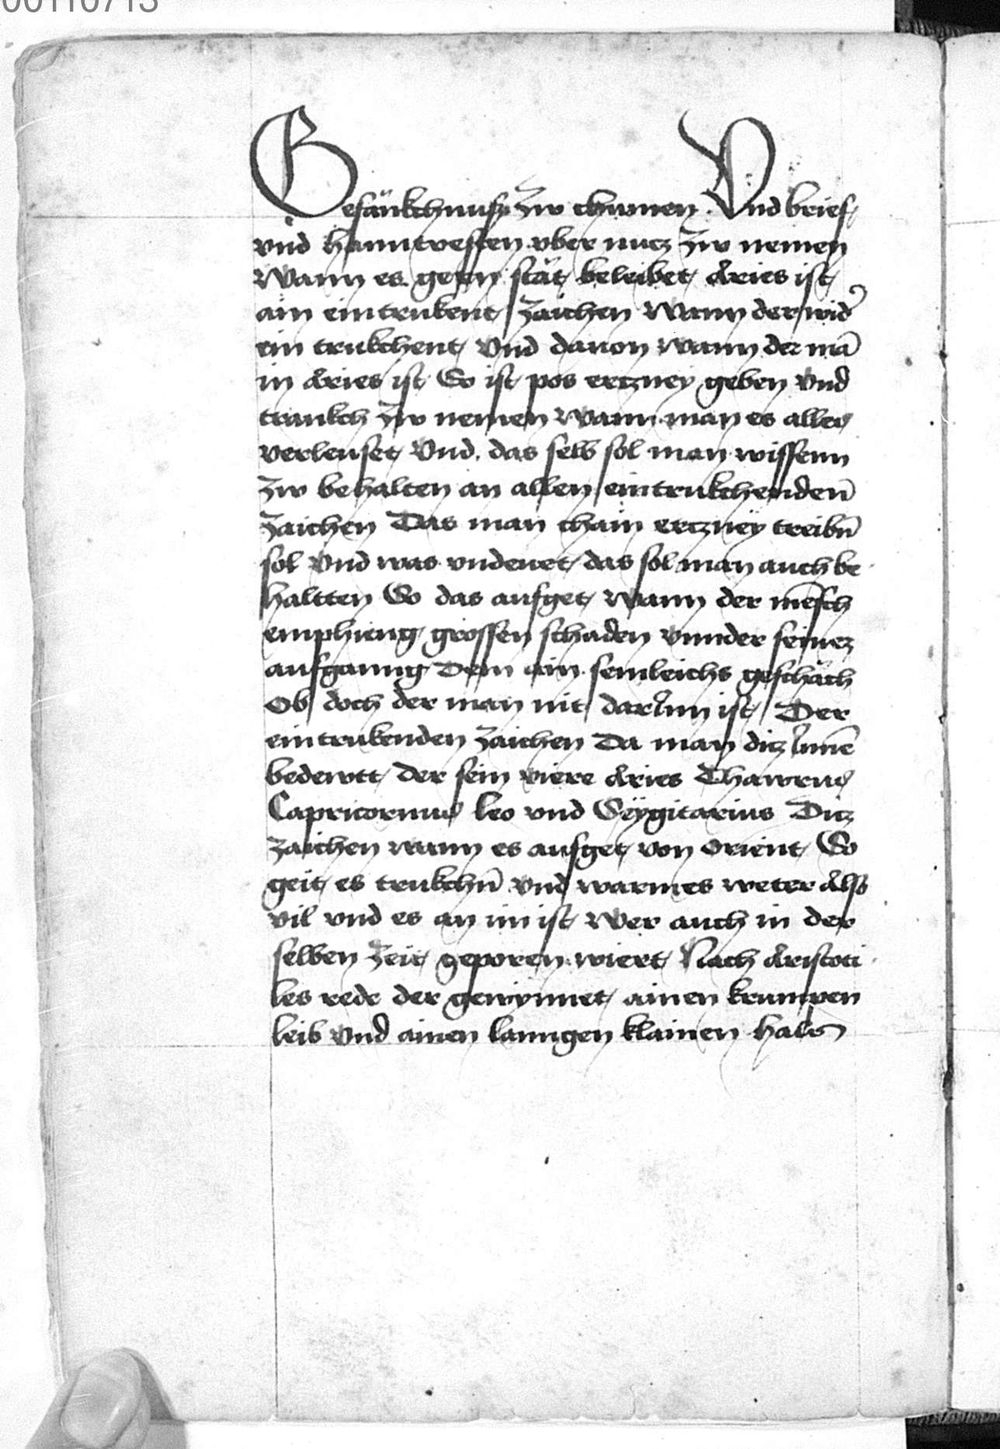 00110713
Gefänkchnuss zw chomen Vnd brief
vnd hanntvessten vber nucz zw nemen
Wann es geren stät beleibet Aries ist
ain eintrukent zaichen Wann der wid̾
ein trukchent Vnd dauon wann der mā
in Aries ist So ist pos erczney geben Vnd
trankch zw nemen Wann man es alles
verleuset Vnd das selb sol man wissenn
zw behalten an allen eintrukchendenn̄
zaichen Das man chain erczney treibn̄
sol Vnd was vndenet das sol man auch be
haltten So das aufget Wann der mēsch
emphieng grossen schaden vnnder seinez
aufganng Dem ain semleichs geschäch
Ob doch der man nit darJnn ist Der
eintrukenden zaichen Da man ditz Jnnē
bedewtt der sein viere Aries Thawrus
Capricornus leo vnd Seygitarius Ditz
zaichen wann es aufget von Orient So
geit es trukchn̄ vnd warmes weter Als
vil vnd es an im ist Wer auch in der
selben zeit geporen wiert Nach Aristoti
les rede der gewynnet ainen krumpen
leib Vnd ainen lanngen klainen hals